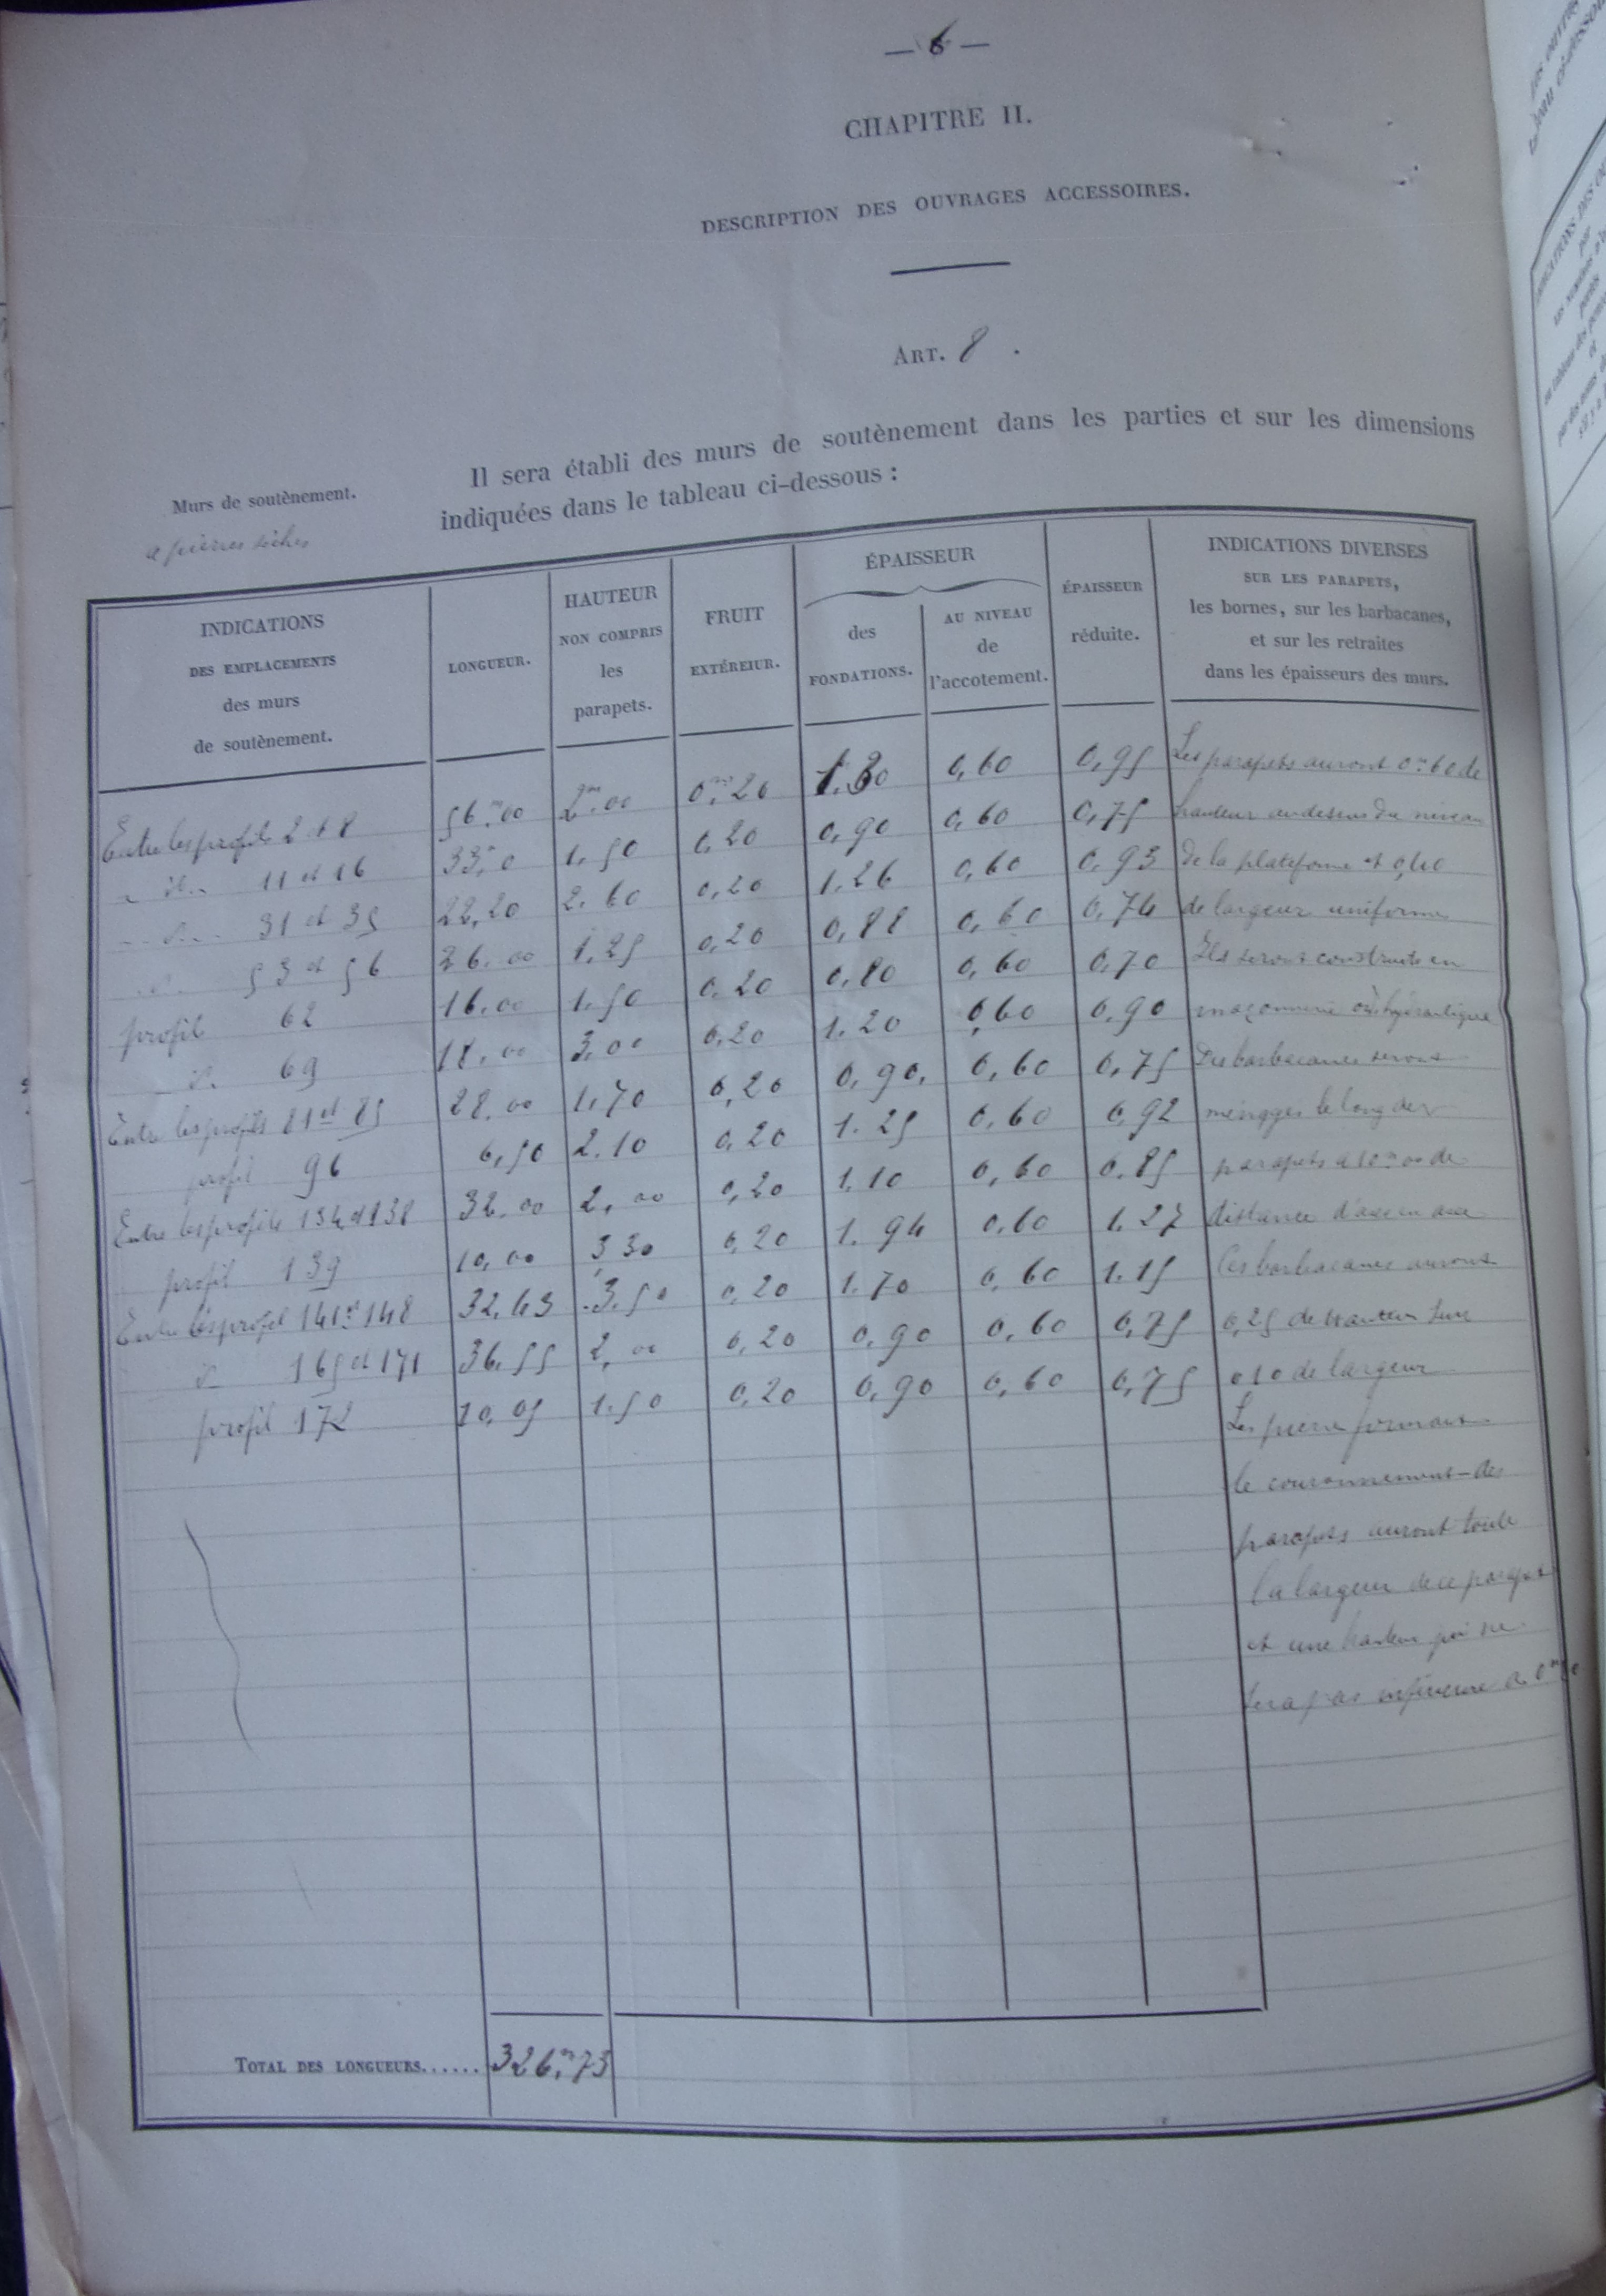 — 6 —
CHAPITRE II.
DESCRIPTION DES OUVRAGES ACCESSOIRES.
ART. 8 .
Murs de soutènement.
à pierres sèches
Il sera établi des murs de soutènement dans les parties et sur les dimensions
indiquées dans le tableau ci-dessous :
INDICATIONS
DES EMPLACEMENTS
des murs
de soutènement.
LONGUEUR.
HAUTEUR
NON COMPRIS
les
parapets.
FRUIT
EXTÉREIUR.
ÉPAISSEUR
des
FONDATIONS.
AU NIVEAU
de
l'accotement.
ÉPAISSEUR
réduite.
INDICATIONS DIVERSES
SUR LES PARAPETS,
les bornes, sur les barbacanes,
et sur les retraites
dans les épaisseurs des murs.
Entre les profils 2 + 8 56,m00 2,m00 0,m20 1.30 0,60 0,95
id. 11 et 16 33,m0 1.50 0,20 0,90 0,60 0,75
d. 31 et 35 22,20 2.60 0,20 1.26 0,60 0,93
d. 53 et 56 26.00 1.25 0,20 0,88 0,60 0,74
profil 62 16.00 1.50 0.20 0,80 0,60 0,70
d. 69 18.00 3,00 0,20 1.20 0,60 0,90
Entre les profils 81 et 85 28.00 1.70 0,20 0,90, 0,60 0,75
profil 96 6,50 2.10 0,20 1.25 0,60 0,92
Entre les profils 134 et 138 32.00 2,00 0,20 1.10 0,60 0,85
profil 139 10,00 3,30 0,20 1.94 0,60 1.27
Entre les profil 141 et 148 32.43 3.50 0,20 1.70 0,60 1.15
d. 165 et 171 36.55 2,00 0,20 0,90 0,60 0,75
profil 172 10,05 1.50 0,20 0,90 0,60 0,75
Les parapets auront 0m60 de
hauteur au dessus du niveau
de la plateforme et 0,40
de largeur uniforme
Ils seront construits en
maçonnerie hydraulique
Des barbacanes seront
ménagées le long des
parapets à 10m00 de
distance d'axe en axe
Ces barbacanes auront
0,25 de hauteur sur
010 de largeur
Les pierre formant
le couronnement des
parapets auront toute
la largeur de ce parapet
et une hauteur qui ne
sera pas inférieure à
TOTAL DES LONGUEURS...... 326,m73